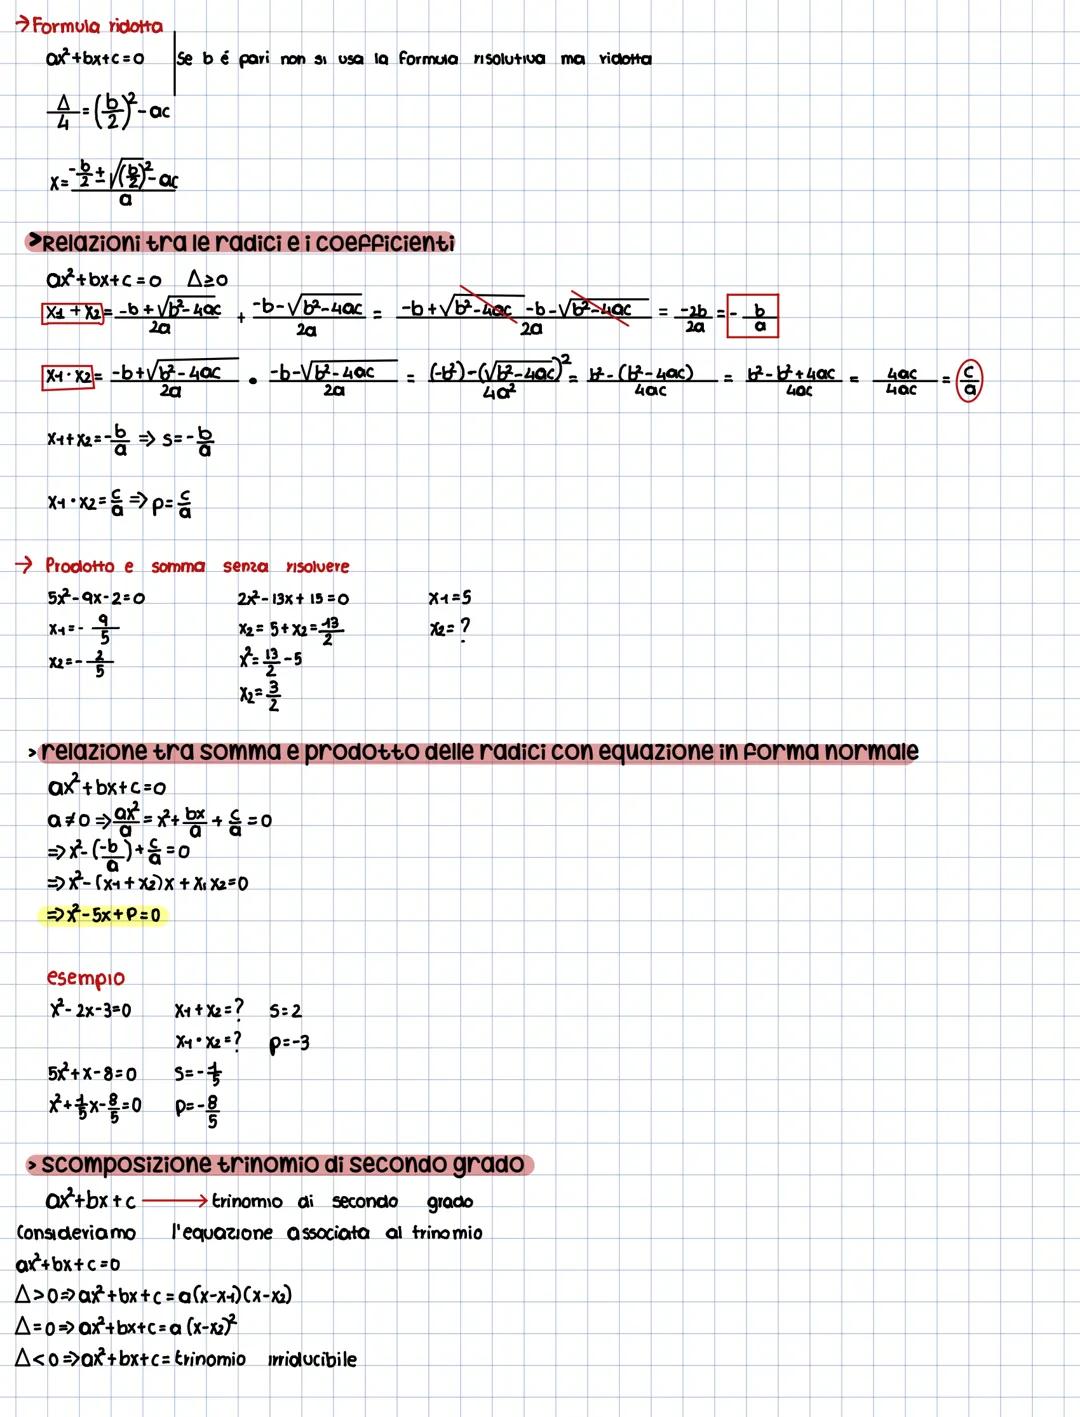 → Formula ridotta
ax²+bx+c=0 | Se b é pari non si usa la formula risolutiva ma ridotta
Δ/4 = (b/2)² - ac
x = (-b/2 ± √(b/2)² - ac)/a
> Relazioni tra le radici e i coefficienti
ax²+bx+c=0 Δ≥0
x1 + x2 = (-b+√b²-4ac)/2a + (-b-√b²-4ac)/2a = (-b+√b²-4ac -b-√b²-4ac)/2a = -2b/2a = -b/a
x1 · x2 = (-b+√b²-4ac)/2a · (-b-√b²-4ac)/2a = ((-b²)-(√b²-4ac)²)/4a² = (b²-(b²-4ac))/4ac = (b²-b²+4ac)/4ac = 4ac/4ac = c/a
x1+x2=-b/a ⇒ s=-b/a
x1·x2=c/a ⇒ p=c/a
→ Prodotto e somma senza risolvere
5x²-9x-2=0 2x²-13x+15=0 x1=5
x1=-9/5 x2=5+x2=13/2 x2=?
x2=-2/5 x²=13/2-5
x2=3/2
> relazione tra somma e prodotto delle radici con equazione in forma normale
ax²+bx+c=0
a≠0 ⇒ ax²/a = x²+bx/a+c/a=0
⇒x²-(-b/a)+c/a=0
⇒x²-(x1+x2)x+x1x2=0
⇒x²-5x+P=0
esempio
x²-2x-3=0 x1+x2=? s=2
x1·x2=? p=-3
5x²+x-8=0 s=-1/5
x²+1/5x-8/5=0 p=-8/5
> scomposizione trinomio di secondo grado
ax²+bx+c → trinomio di secondo grado
Consideriamo l'equazione associata al trinomio
ax²+bx+c=0
Δ>0⇒ax²+bx+c=a(x-x1)(x-x2)
Δ=0⇒ax²+bx+c=a(x-x2)²
Δ<0⇒ax²+bx+c=trinomio irriducibile